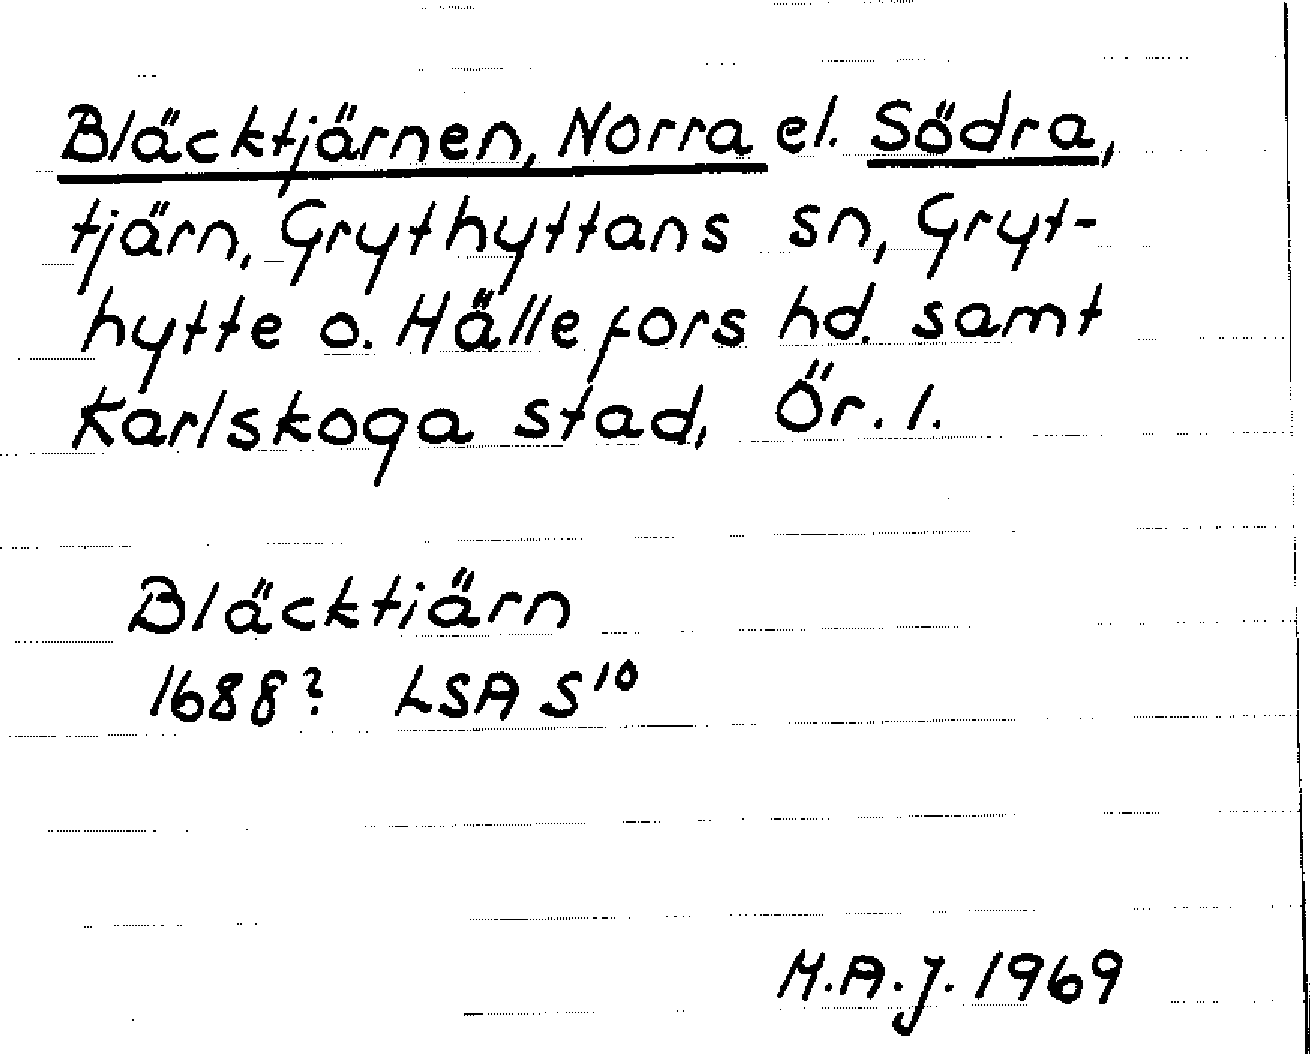 Bläcktjärnen, Norra el. Södra,
tjärn, Grythyttans sn, Gryt-
hytte o. Hällefors hd. samt
Karlskoga stad, Ör. l.
Bläcktiärn
1688? LSA S¹⁰
M.A.J. 1969